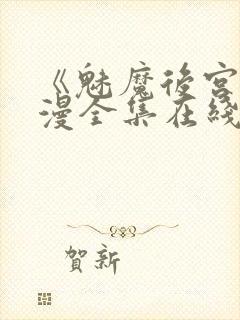 《魅魔後宮
漫全集在綫
賀新